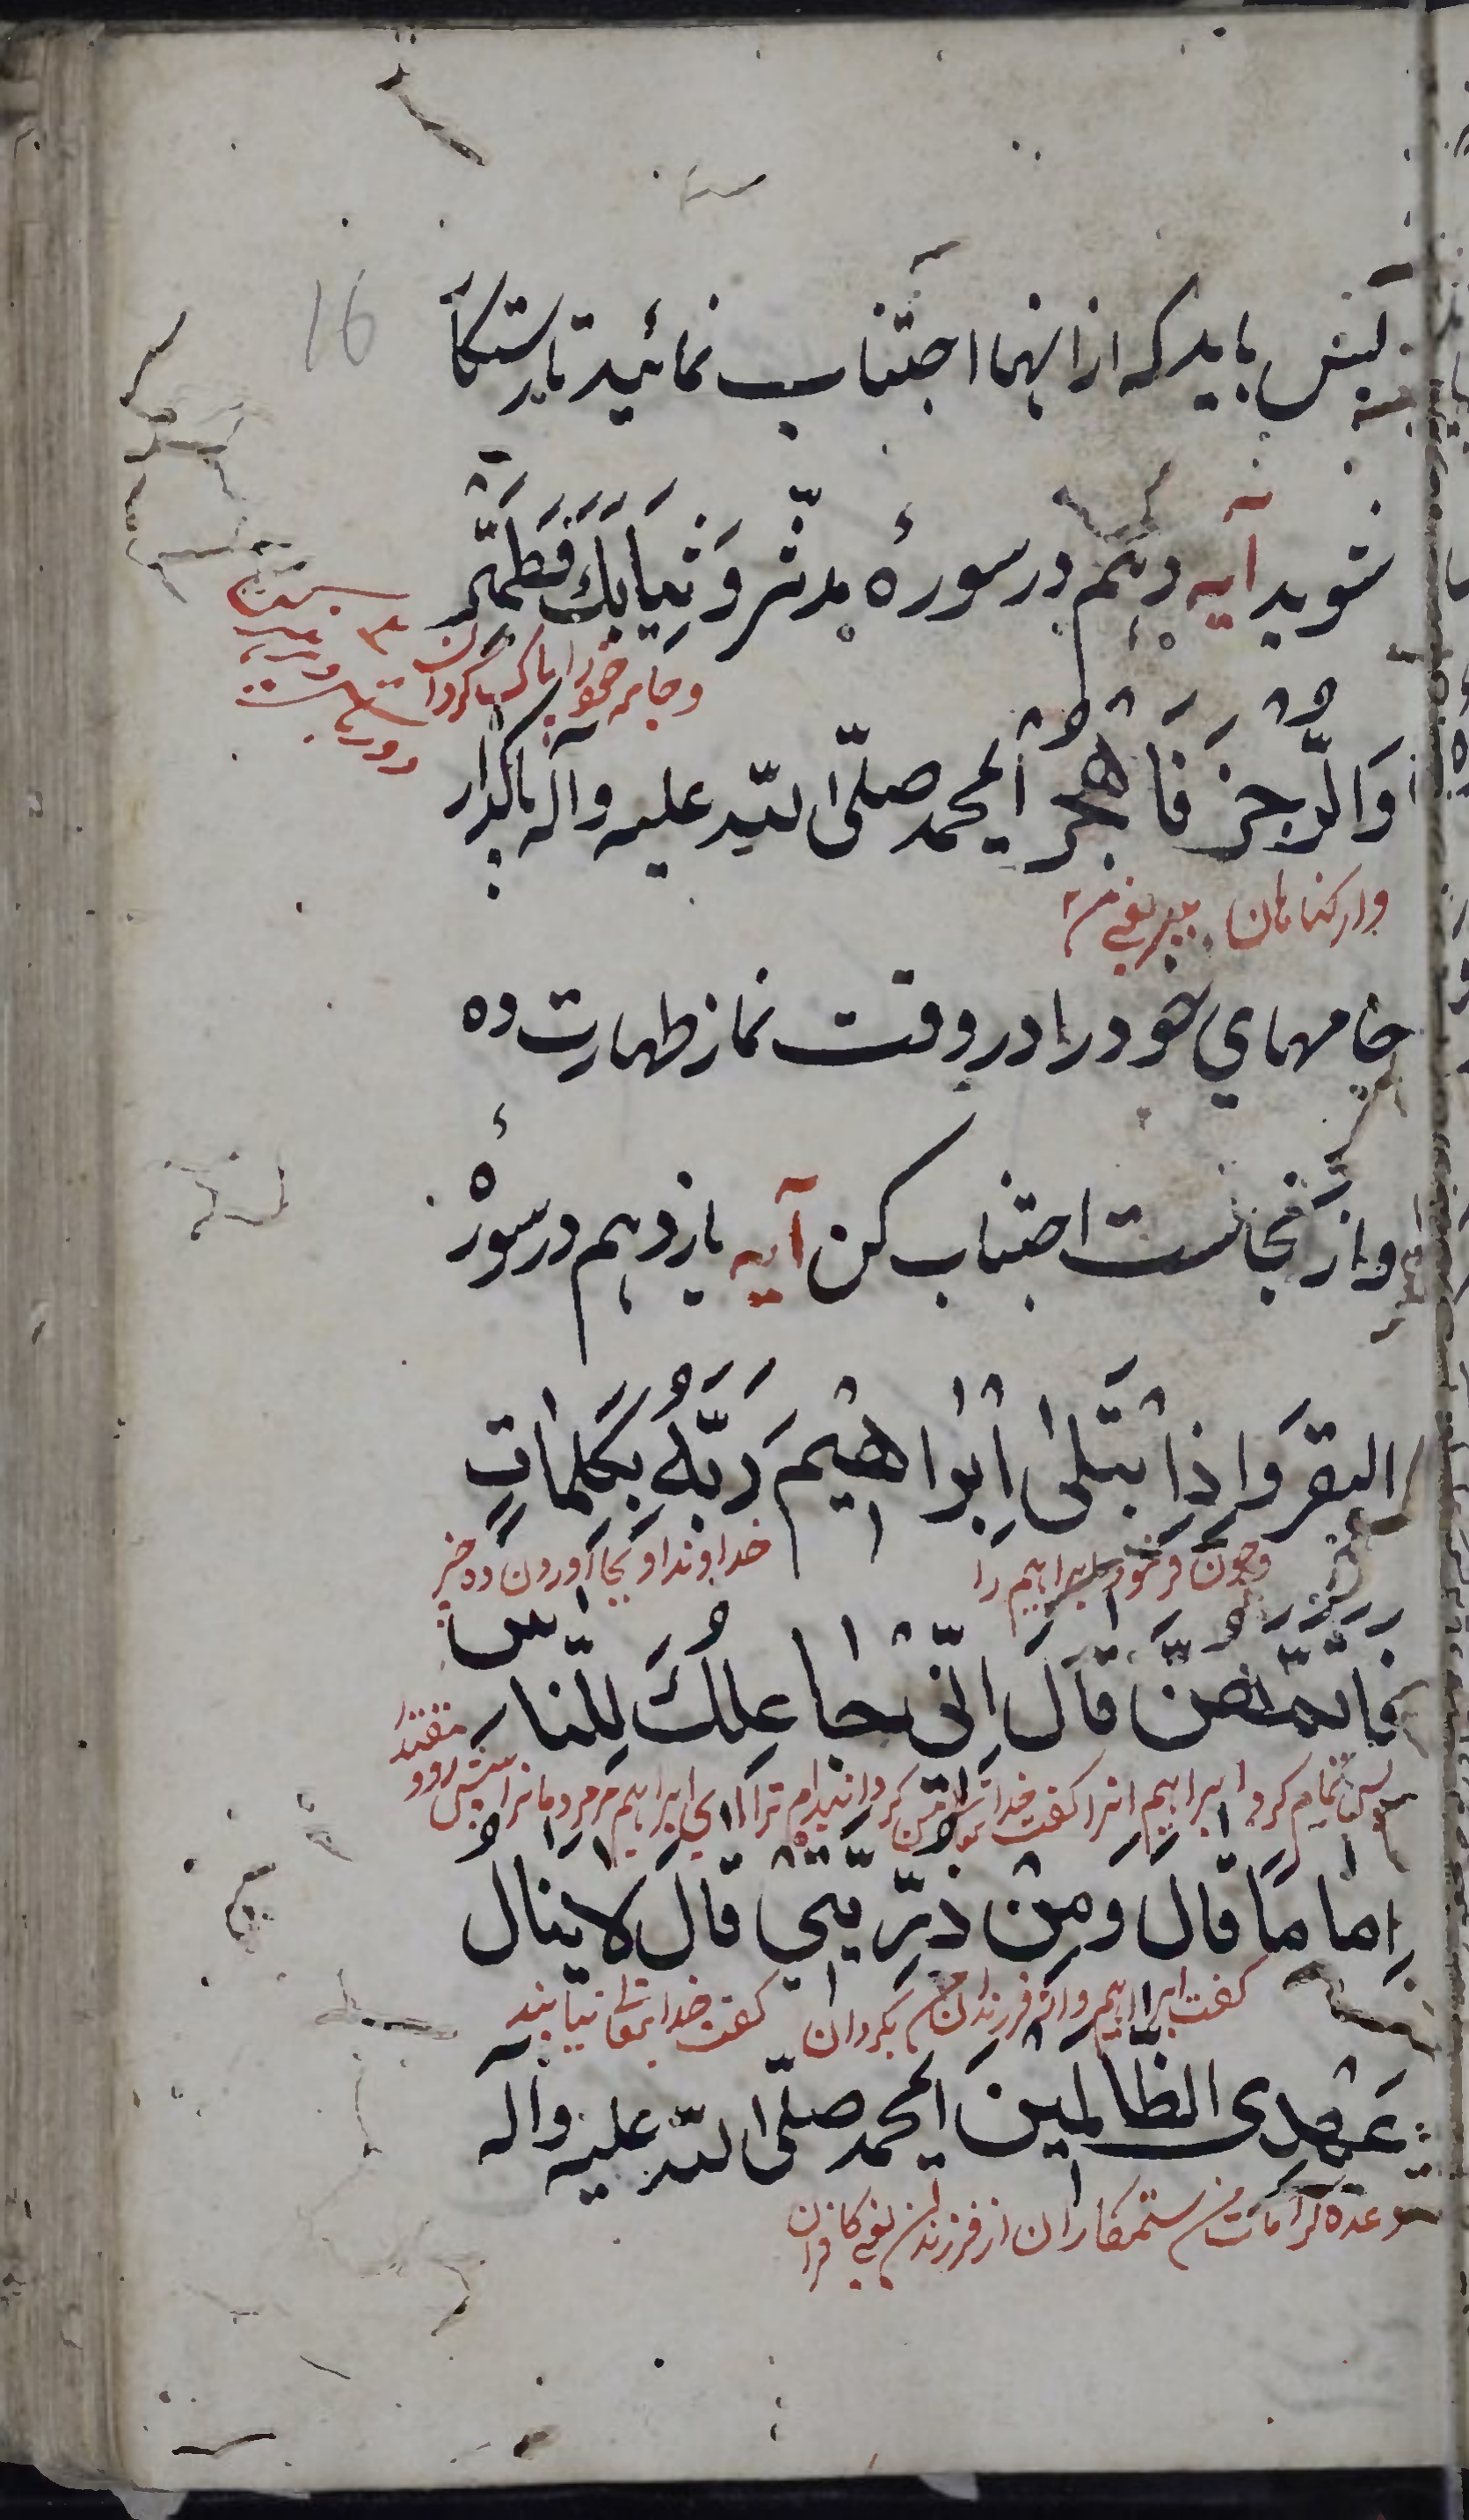 16
پس باید که از انها اجتناب نمائید تا رستکا
شوید آیه دهم در سورهٔ مدثّر وَثِیَابَكَ فَطَهِّرْ
وجامه خود را پاک بکردان
وَالرُّجْزَ فَاهْجُرْ ایمحمد صلّی اللّه علیه وآله پاکدار
واز کناهان ببر یعنی
جامهای خود را در وقت نماز طهارت ده
واز نجاست اجتناب کن آیه یازدهم در سورهٔ
البقر وَاِذِابْتَلیٰ اِبْراهیٖمَ رَبُّهُ بِکَلِمٰاتٍ
وچون فرمود ابراهیم را خداوند او بجا آوردن ده خبر
فَاَتَمَّهُنَّ قٰالَ اِنّیٖ جٰاعِلُكَ لِلنّٰاسِ
پس تمام کرد ابراهیم انرا کفت خدا بدرستی من کردانیدم ترا ای ابراهیم مر مردمانرا پیش رو و مقتدا
اِمٰامًا قٰالَ وَمِنْ ذُرِّیَّتیٖ قٰالَ لٰایَنٰالُ
کفت ابراهیم واز فرزندان من بکردان کفت خدایتعالی نیابند
عَهْدِی الظّٰالِمیٖنَ ایمحمد صلّی اللّه علیه وآله
وعده کرامات من ستمکاران از فرزندان یعنی کافران